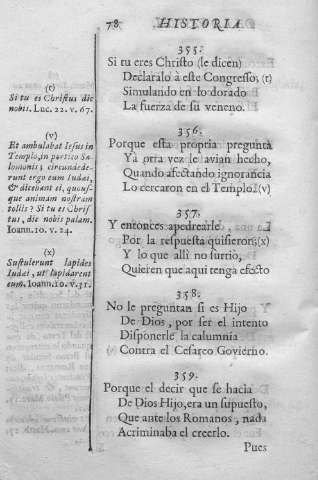 78 HISTORIA
355.
Si tu eres Christo (le dicen)
Declaralo à este Congresso, (t)
Simulando en lo dorado
La fuerza de su veneno.
356.
Porque esta propria pregunta
Ya otra vez le avian hecho,
Quando afectando ignorancia
Lo cercaron en el Templo. (v)
357.
Y entonces apedrearle
Por la respuesta quisieron; (x)
Y lo que alli no surtiò,
Quieren que aqui tenga efecto
358.
No le preguntan si es Hijo
De Dios, por ser el intento
Disponerle la calumnia
Contra el Cesareo Govierno.
359.
Porque el decir que se hacia
De Dios Hijo, era un supuesto,
Que ante los Romanos, nada
Acriminaba el creerlo.
Pues
(t)
Si tu es Christus dic
nobis. Luc. 22. v. 67.
(v)
Et ambulabat Iesus in
Templo, in porticu Sa-
lomonis; circundede-
runt ergo eum Iudæi,
& dicebant ei, quous-
que animam nostram
tollis? Si tu es Chris-
tus, dic nobis palam.
Ioann. 10. v. 24.
(x)
Sustulerunt lapides
Iudæi, ut lapidarent
eum. Ioann. 10. v. 31.